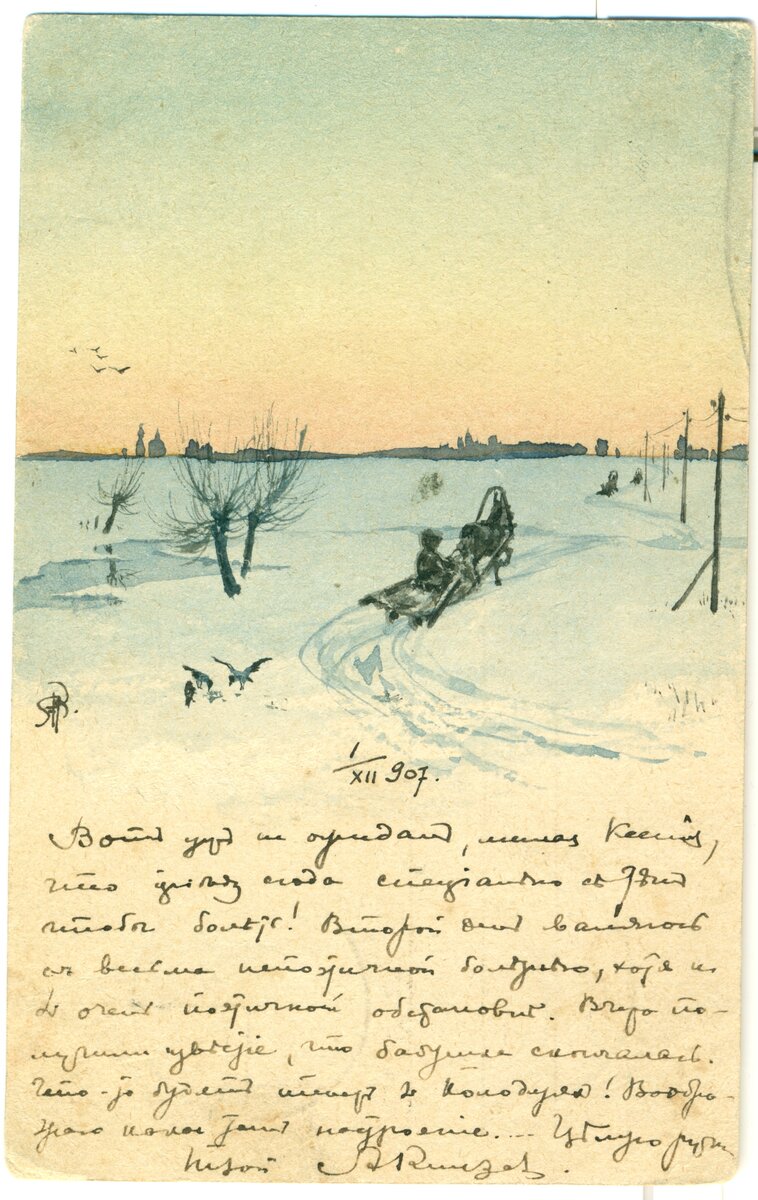 1/XII 907.
Вотъ ужъ не ожидалъ, милая Ксенія,
что пріѣду сюда спеціально съ тѣмъ
чтобы болѣть! Второй день валяюсь
съ весьма непоэтичной болѣзнью, хотя и
въ очень поэтичной обстановкѣ. Вчера по-
лучили извѣстіе, что бабушка скончалась.
Что-то будетъ теперь въ! Вообра-
жаю какое тамъ настроеніе.... Цѣлую ручки
Твой